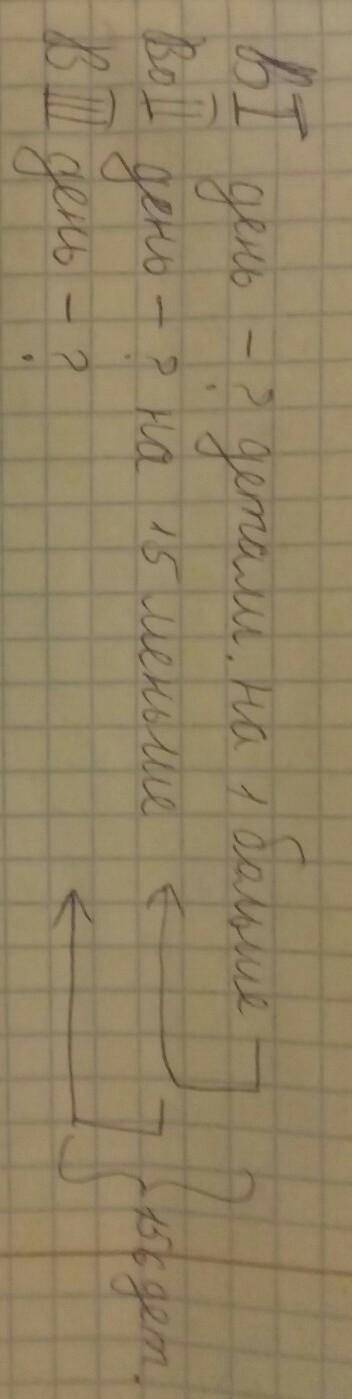 В I день - ? детали. на 1 больше
Во II день - ? на 15 меньше
В III день - ?
156 дет.